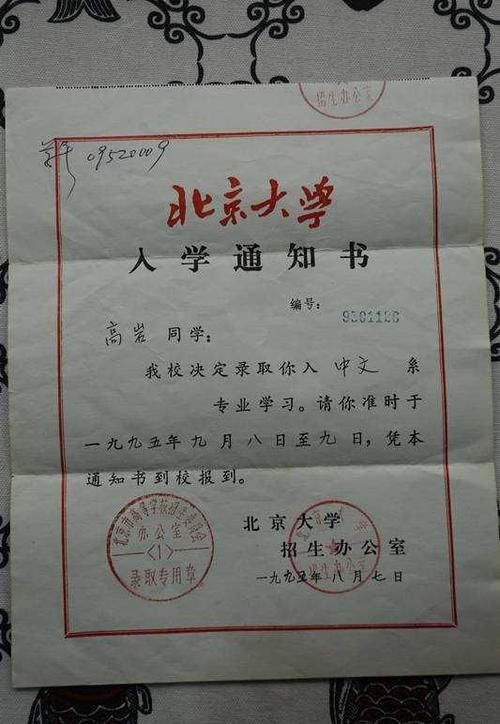 招生办公室
09520009
北京大学
入学通知书
编号:
9501126
高岩 同学:
我校决定录取你入 中文 系
专业学习。请你准时于
一九九五年九月八日至九日,凭本
通知书到校报到。
北京市高等学校招生委员会
办公室
<1>
录取专用章
北京大学
招生办公室
招生办公室
一九九五年八月七日